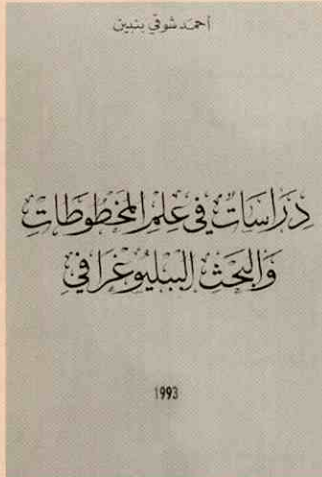 أحمد شوقي بنبين
دِرَاسَاتٌ فِي عِلْمِ المَخْطُوطَاتِ
وَالبَحْثِ البِبْلِيُوغْرَافِيِّ
1993